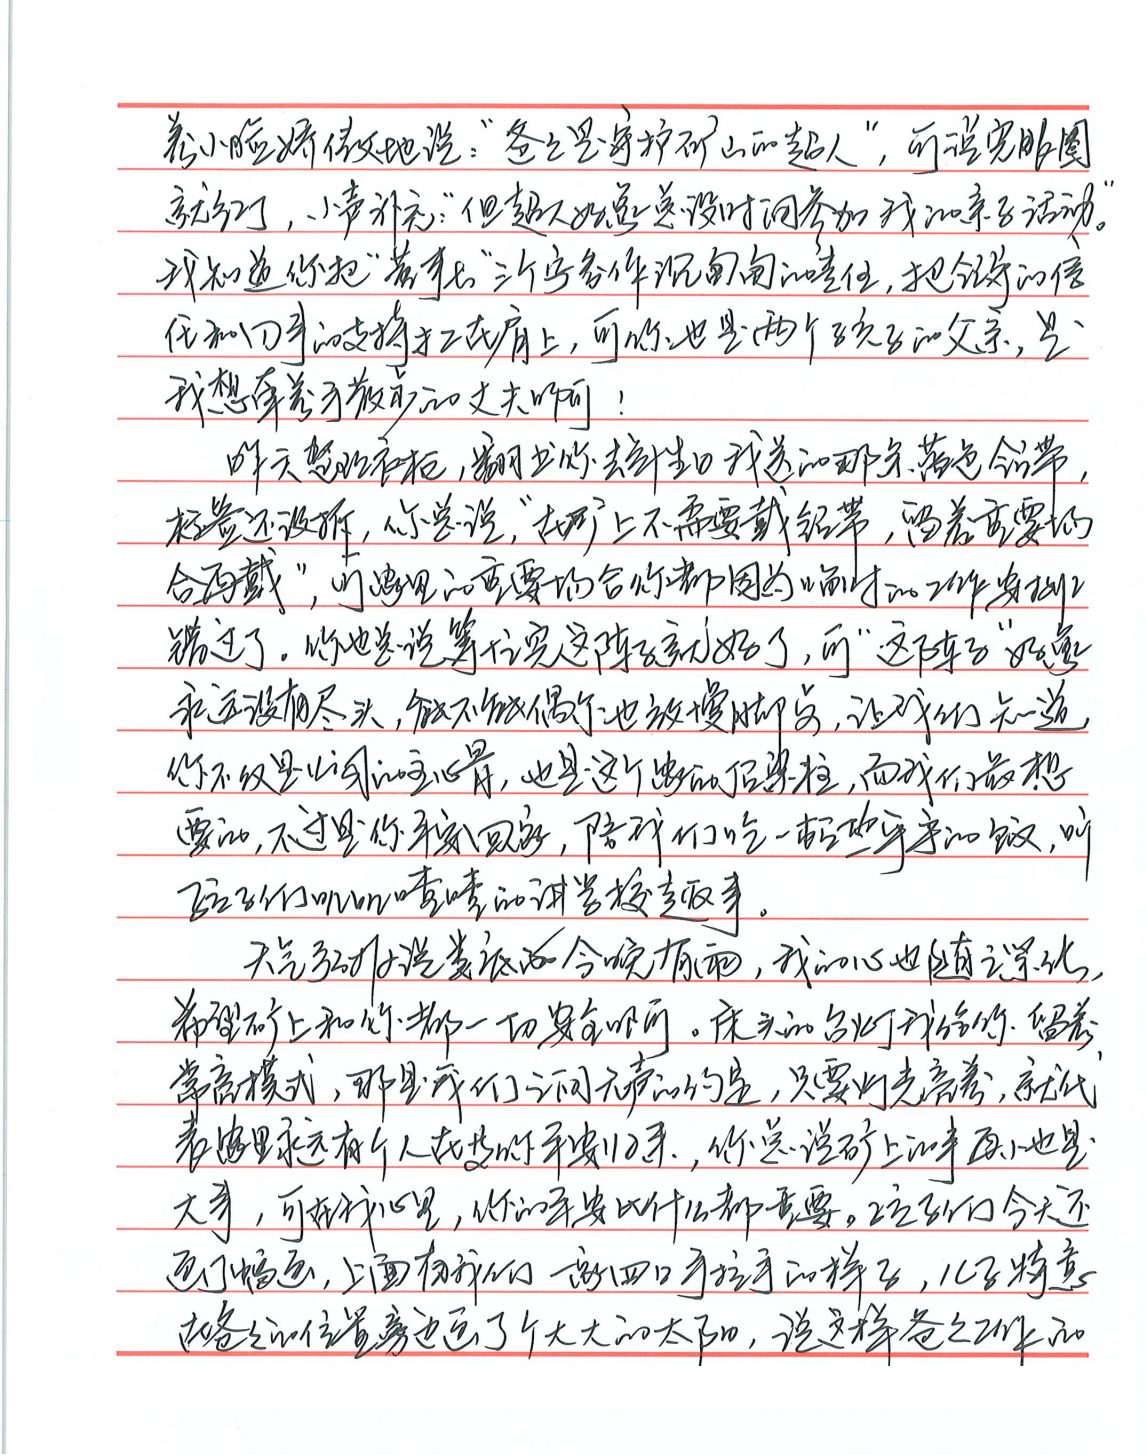 着小脸娇傲地说：“爸爸是守护矿山的超人”，可说完眼圈
就红了，小声补充：“但超人好像总没时间参加我的亲子活动。”
我知道你把“董事长”三个字看作沉甸甸的责任，把领导的信
任和同事的支持扛在肩上，可你也是两个孩子的父亲，是
我想牵着手散步的丈夫啊！
昨天整理衣柜，翻出你去年生日我送的那条蓝色领带，
标签还没拆，你总说，“在矿上不需要戴领带，留着重要场
合再戴”，可家里的重要场合你都因为临时的工作安排
错过了。你也总说等忙完这阵子就好了，可“这阵子”好像
永远没有尽头，能不能偶尔也放慢脚步，让我们知道
你不仅是公司的主心骨，也是这个家的顶梁柱，而我们最想
要的，不过是你平安回家，陪我们吃一顿热乎乎的饭，听
孩子们叽叽喳喳的讲学校趣事。
天气预报说娄底的今晚有雨，我的心也随之紧张，
希望矿上和你都一切安全啊。床头的台灯我给你留着
常亮模式，那是我们之间无声的约定，只要灯光亮着，就代
表家里永远有个人在等你平安归来，你总说矿上的事再小也是
大事，可在我心里，你的平安比什么都重要。孩子们今天还
画了幅画，上面有我们一家四口手拉手的样子，儿子特意
在爸爸的位置旁边画了个大大的太阳，说这样爸爸工作的